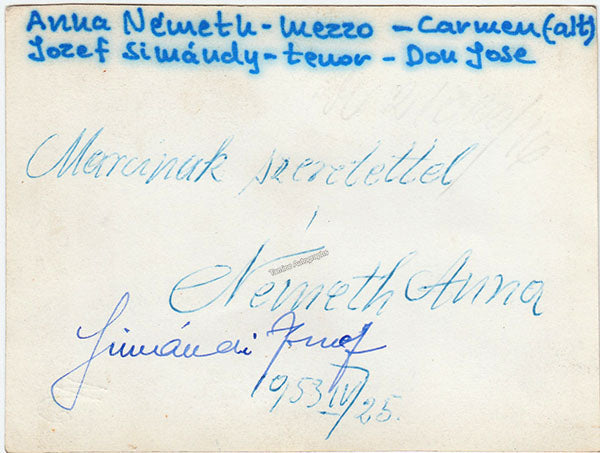 Anna Németh - mezzo - Carmen (alt)
Jozef Simándy - tenor - Don Jose
Marcinak szeretettel
Tamino Autographs
Németh Anna
Simándi József
1953 IV/25.